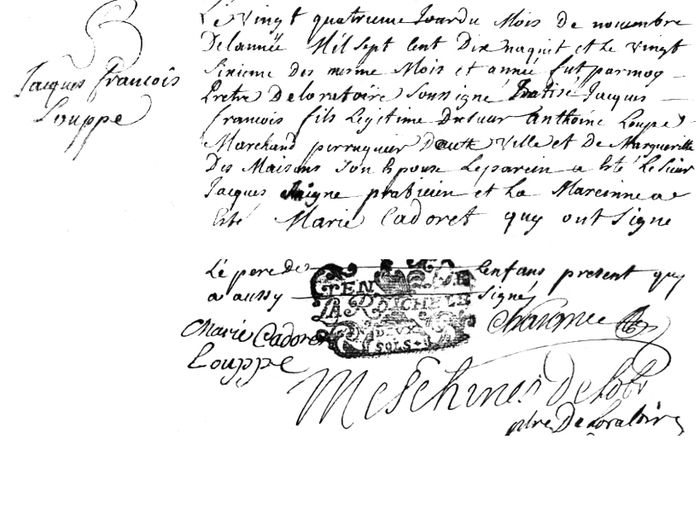 Jacques francois
Louppe
Le vingt quatrieme Jour du Mois de novembre
Delannée Mil sept Cent Dix naquit et le vingt
Sixieme des mesme Mois et année fut par moy
Pretre Deloratoire Soussigné Batisé Jacques
francois fils Legitime Du sieur anthoine Louppe
Marchand perruquier Ville et De Margueritte
Des Maisons Son Epouse Leparein a Esté Le Sieur
Jacques praticien et La Mareinne a
Esté Marie Cadoret quy ont Signe
Le pere de Lenfans present quy
a aussy signé
GEN DE
LA ROCHELLE
DEUX
SOLS
Marie Cadoret
Louppe
Meschinet De
ptre De Loratoire